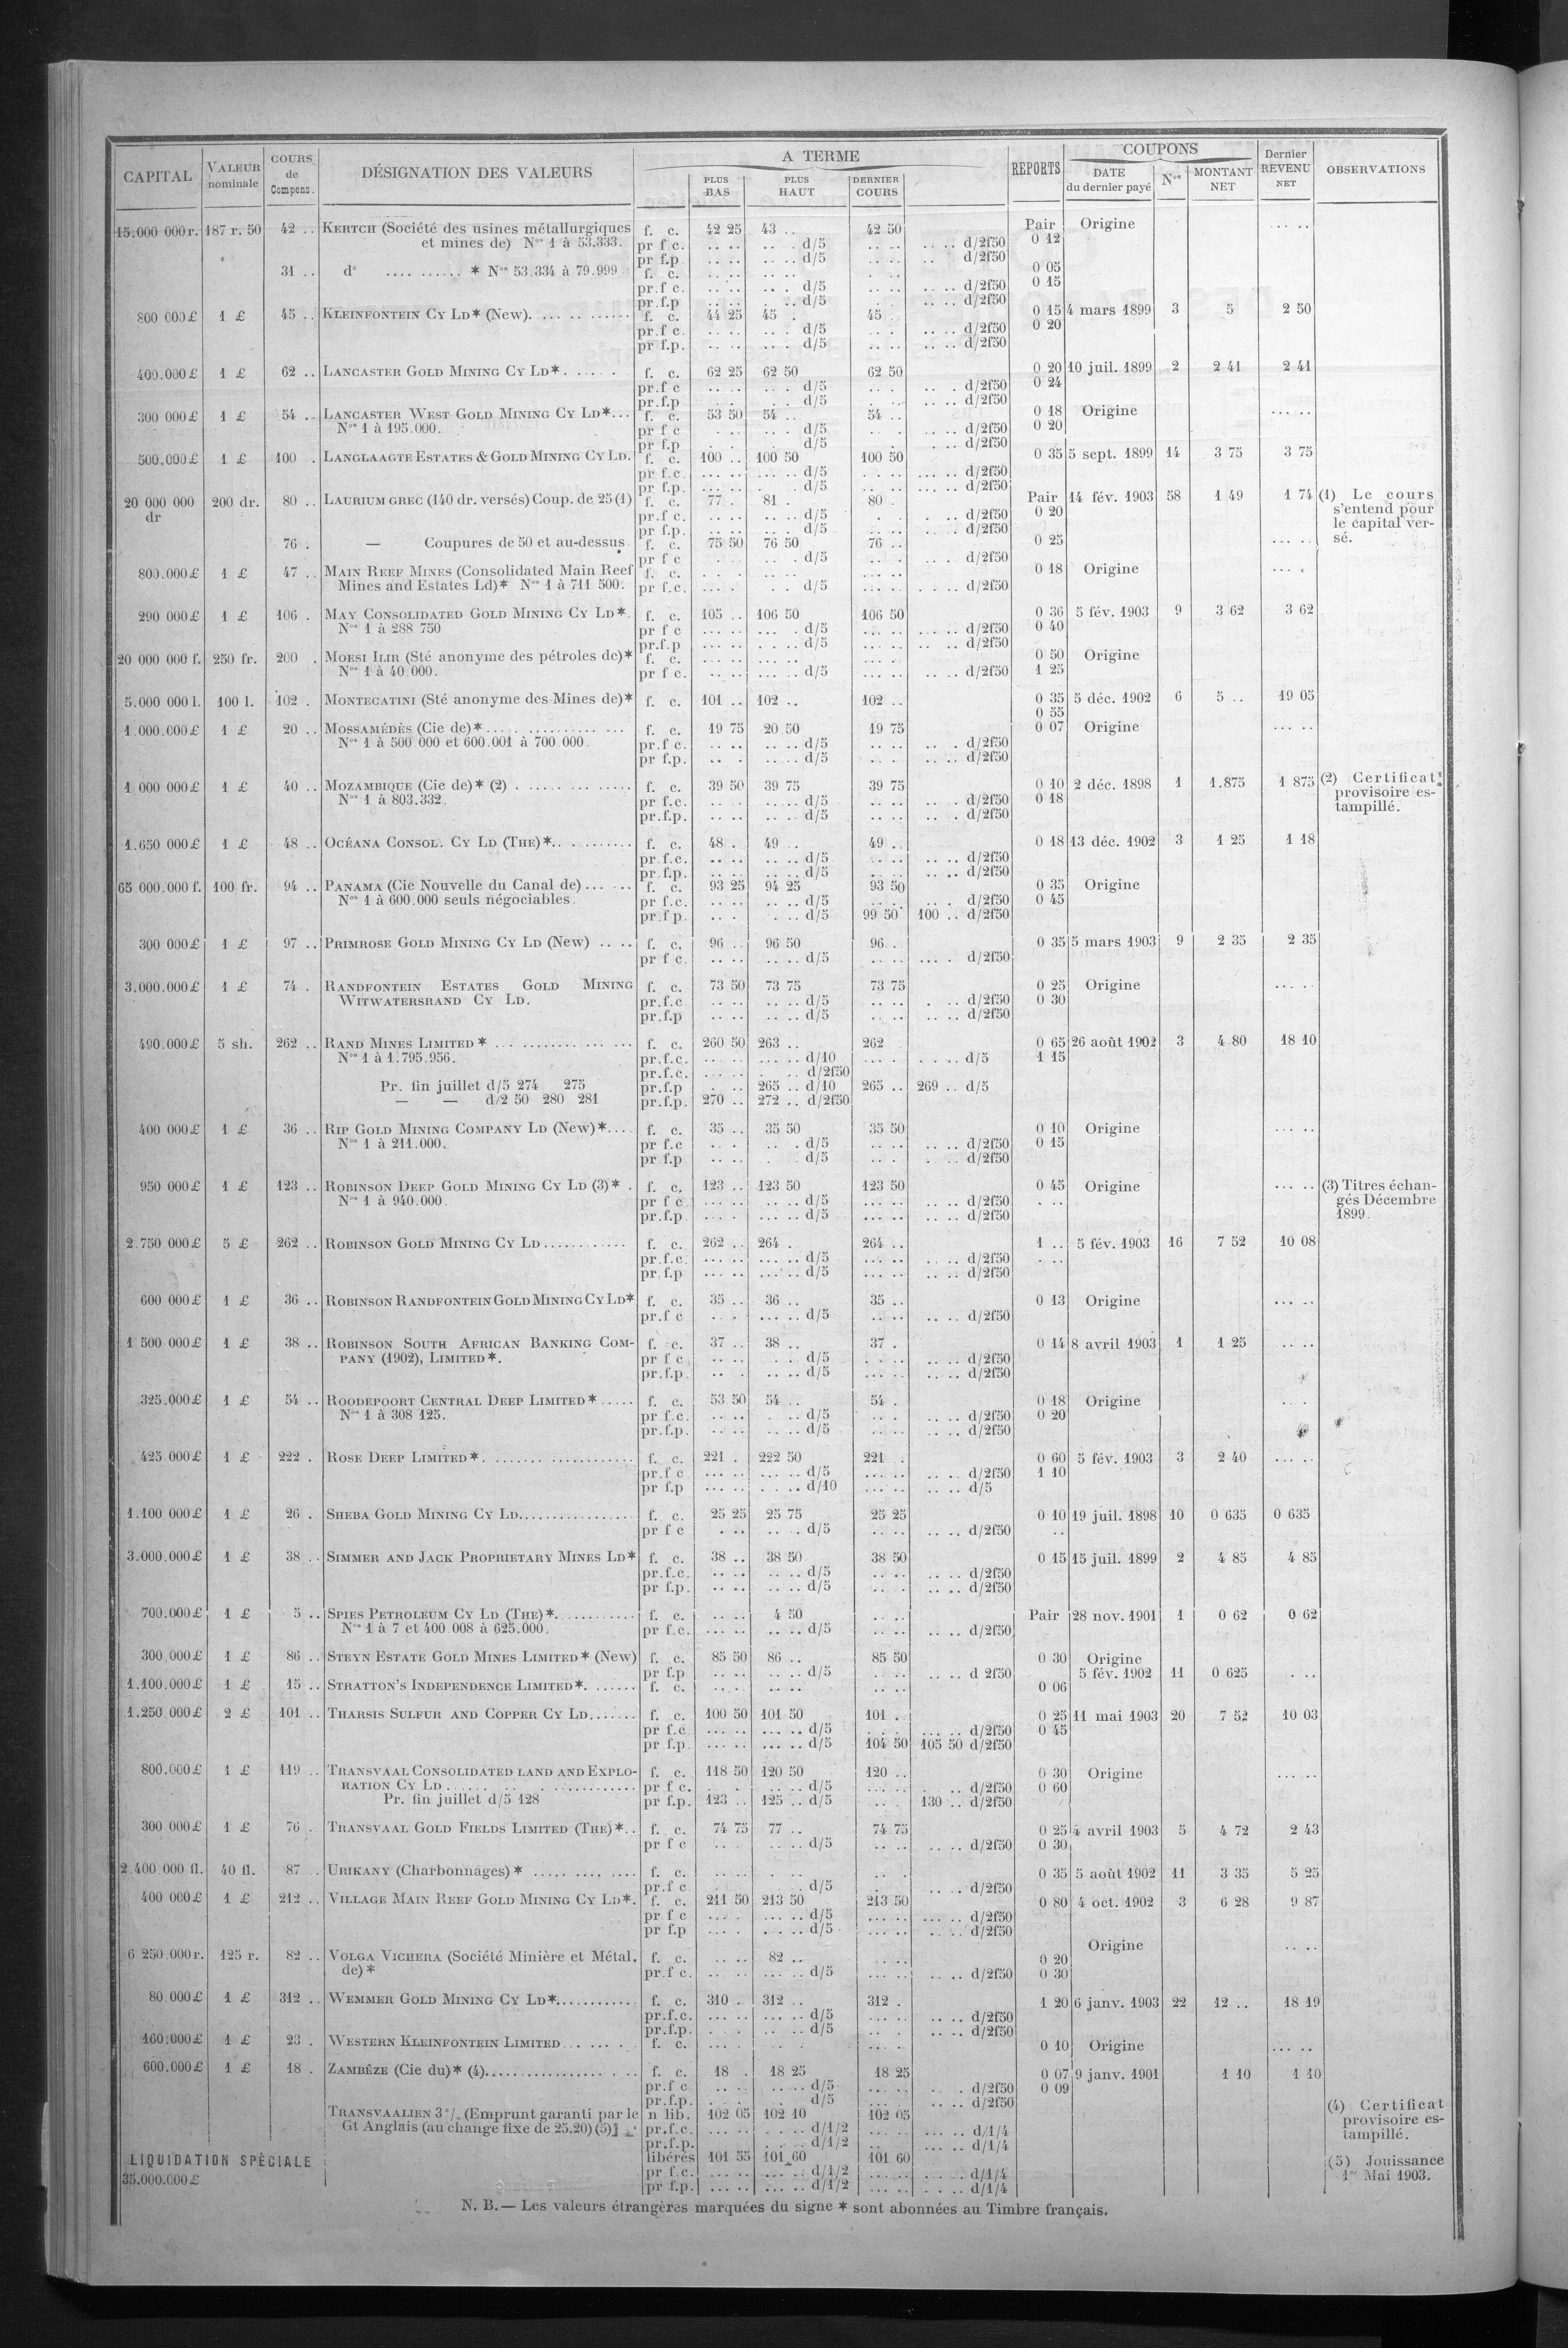 CAPITAL | VALEUR nominale | COURS de Compens. | DÉSIGNATION DES VALEURS | A TERME | PLUS BAS | PLUS HAUT | DERNIER COURS | REPORTS | COUPONS | DATE du dernier payé | Nos | MONTANT NET | Dernier REVENU NET | OBSERVATIONS
15.000 000r. 187 r. 50 42 .. KERTCH (Société des usines métallurgiques f. c. 42 25 43 .. 42 50 Pair Origine ... ..
et mines de) Nos 1 à 53.333. pr f c. .. .. .. .. d/5 .. .. .. .. d/2f50 0 12
pr f.p .. .. .. .. d/5 .. .. .. d/2f50
31 .. do .... ...... * Nos 53.334 à 79.999 f. c. .. .. .. .. 0 05
pr.f c. .. .. .. . d/5 .. .. .. .. d/2f50 0 15
pr.f.p .. .. . .. d/5 . . .. .. d/2f50
800 000£ 1 £ 45 .. KLEINFONTEIN CY LD* (New). f. c. 44 25 45 . 45 . 0 15 4 mars 1899 3 5 2 50
pr.f c. .. .. .. . d/5 .. . .. .. d/2f50 0 20
pr f.p. .. .. .. . d/5 .. .. .. .. d/2f50
400.000£ 1 £ 62 .. LANCASTER GOLD MINING CY LD* f. c. 62 25 62 50 62 50 0 20 10 juil. 1899 2 2 41 2 41
pr.f c .. .. .. . d/5 .. . .. . d/2f50 0 24
pr.f.p .. . .. . d/5 .. . .. .. d/2f50
300 000£ 1 £ 54 .. LANCASTER WEST GOLD MINING CY LD*... f. c. 53 50 54 .. 54 .. 0 18 Origine ... ..
Nos 1 à 195.000. pr f c . .. .. . d/5 .. . .. .. d/2f50 0 20
pr f.p . . .. d/5 . . .. d/2f50
500.000£ 1 £ 100 . LANGLAAGTE ESTATES & GOLD MINING CY LD. f. c. 100 .. 100 50 100 50 0 35 5 sept. 1899 14 3 75 3 75
pr f.c. ... .. ... .. d/5 ... .. ... .. d/2f50
pr f.p. ... .. . d/5 ... .. ... .. d/2f50
20 000 000 dr 200 dr. 80 .. LAURIUM GREC (140 dr. versés) Coup. de 25 (1) f. c. 77 . 81 . 80 . Pair 14 fév. 1903 58 1 49 1 74 (1) Le cours
pr.f c. .. .. .. .. d/5 . . . .. d/2f50 0 20 s'entend pour
pr f.p. .. .. .. . d/5 .. .. .. .. d/2f50 le capital ver-
76 . — Coupures de 50 et au-dessus. f. c. 75 50 76 50 76 .. 0 25 ... .. sé.
pr f c . .. . d/5 .. . .. . d/2f50
800.000£ 1 £ 47 .. MAIN REEF MINES (Consolidated Main Reef f. c. . . .. .. .. .. 0 18 Origine ... .
Mines and Estates Ld)* Nos 1 à 711 500. pr f.c. .. . . . d/5 ... . . .. .. d/2f50
290 000£ 1 £ 106 . MAY CONSOLIDATED GOLD MINING CY LD*. f. c. 105 .. 106 50 106 50 0 36 5 fév. 1903 9 3 62 3 62
Nos 1 à 288 750 pr f c ... .. ... . d/5 ... .. ... .. d/2f50 0 40
pr.f.p ... .. . .. d/5 ... .. .. .. d/2f50
20 000 000 f. 250 fr. 200 . MOESI ILIR (Sté anonyme des pétroles de)* f. c. ... .. ... .. ... .. 0 50 Origine
Nos 1 à 40 000. pr f c. .. .. ... .. d/5 ... .. .. .. d/2f50 1 25
5.000 000 l. 100 l. 102 . MONTECATINI (Sté anonyme des Mines de)* f. c. 101 .. 102 .. 102 .. 0 35 5 déc. 1902 6 5 .. 19 05
0 55
1.000.000£ 1 £ 20 .. MOSSAMÉDÈS (Cie de)* f. c. 19 75 20 50 19 75 0 07 Origine ... ..
Nos 1 à 500 000 et 600.001 à 700 000. pr.f c. .. .. .. .. d/5 .. .. .. . d/2f50
pr f.p. .. . .. .. d/5 .. .. .. .. d/2f50
1 000 000£ 1 £ 40 .. MOZAMBIQUE (Cie de)* (2) f. c. 39 50 39 75 39 75 0 10 2 déc. 1898 1 1.875 1 875 (2) Certificat
Nos 1 à 803.332. pr f.c. .. . .. .. d/5 .. .. .. . d/2f50 0 18 provisoire es-
pr.f.p. .. .. .. .. d/5 .. . .. . d/2f50 tampillé.
1.650 000£ 1 £ 48 .. OCÉANA CONSOL. CY LD (THE)*. f. c. 48 . 49 .. 49 .. 0 18 13 déc. 1902 3 1 25 1 18
pr.f.c. .. .. .. .. d/5 .. .. .. .. d/2f50
pr.f.p. .. .. .. .. d/5 .. . .. .. d/2f50
65.000.000 f. 100 fr. 94 .. PANAMA (Cie Nouvelle du Canal de) f. c. 93 25 94 25 93 50 0 35 Origine
Nos 1 à 600.000 seuls négociables. pr f.c. .. .. .. .. d/5 .. .. .. . d/2f50 0 45
pr.f p. .. . . .. d/5 99 50 100 .. d/2f50
300 000£ 1 £ 97 .. PRIMROSE GOLD MINING CY LD (New) f. c. 96 .. 96 50 96. . 0 35 5 mars 1903 9 2 35 2 35
pr f c. .. .. .. .. d/5 .. .. ... . d/2f50
3.000.000£ 1 £ 74 . RANDFONTEIN ESTATES GOLD MINING f. c. 73 50 73 75 73 75 0 25 Origine ... ..
WITWATERSRAND CY LD. pr.f.c .. .. .. .. d/5 .. .. . .. d/2f50 0 30
pr.f.p .. .. .. .. d/5 .. .. .. .. d/2f50
490.000£ 5 sh. 262 .. RAND MINES LIMITED * f. c. 260 50 263 .. 262 0 65 26 août 1902 3 4 80 18 10
Nos 1 à 1.795.956. pr.f.c. .. .. ... .. d/10 ... . . .. .. d/5 1 15
pr.f.c. .. .. . .. d/2f50
Pr. fin juillet d/5 274 275 pr.f.p . .. 265 .. d/10 265 .. 269 .. d/5
— — d/2 50 280 281 pr.f.p. 270 .. 272 .. d/2f50
400 000£ 1 £ 36 .. RIP GOLD MINING COMPANY LD (New)*.... f. c. 35 .. 35 50 35 50 0 10 Origine ... ..
Nos 1 à 211.000. pr f.c .. . .. . d/5 .. . .. .. d/2f50 0 15
pr f.p .. .. . d/5 .. . . .. .. d/2f50
950 000£ 1 £ 123 .. ROBINSON DEEP GOLD MINING CY LD (3)* . f. c. 123 .. 123 50 123 50 0 45 Origine ... .. (3) Titres échan-
Nos 1 à 940.000. pr f c. ... .. .. .. d/5 ... .. .. .. d/2f50 . .. gés Décembre
pr.f.p. ... . ... .. d/5 ... .. .. .. d/2f50 1899.
2.750 000£ 5 £ 262 .. ROBINSON GOLD MINING CY LD f. c. 262 .. 264 . 264 .. 1 .. 5 fév. 1903 16 7 52 10 08
pr.f.c. ... .. ... .. d/5 ... .. .. .. d/2f50 . ..
pr.f.p ... .. ... .. d/5 ... .. .. .. d/2f50
600 000£ 1 £ 36 .. ROBINSON RANDFONTEIN GOLD MINING CY LD* f. c. 35 .. 36 .. 35 .. 0 13 Origine ... ..
pr.f c .. . ... .. d/5 .. .. .. .. d/2f50
1 500 000£ 1 £ 38 .. ROBINSON SOUTH AFRICAN BANKING COM- f. c. 37 .. 38 .. 37 . 0 14 8 avril 1903 1 1 25 ... ..
PANY (1902), LIMITED*. pr f c .. .. . .. d/5 . .. . .. .. d/2f50
pr.f.p. .. . .. .. d/5 .. .. .. .. d/2f50
325.000£ 1 £ 54 .. ROODEPOORT CENTRAL DEEP LIMITED* f. c. 53 50 54 .. 54 . 0 18 Origine .. .
Nos 1 à 308 125. pr f.c. .. .. . .. d/5 .. . .. .. d/2f50 0 20
pr.f.p. .. .. .. .. d/5 .. .. .. .. d/2f50
425.000£ 1 £ 222 . ROSE DEEP LIMITED*. f. c. 221 . 222 50 221 .. 0 60 5 fév. 1903 3 2 40 ... ..
pr.f c ... .. ... .. d/5 ... .. .. . d/2f50 1 10
pr f.p ... .. . .. .. d/10 ... .. .. .. d/5
1.100 000£ 1 £ 26 . SHEBA GOLD MINING CY LD f. c. 25 25 25 75 25 25 0 10 19 juil. 1898 10 0 635 0 635
pr f c . .. .. .. d/5 .. .. .. .. d/2f50 ..
3.000.000£ 1 £ 38 .. SIMMER AND JACK PROPRIETARY MINES LD* f. c. 38 .. 38 50 38 50 0 15 15 juil. 1899 2 4 85 4 85
pr.f.c. .. .. .. .. d/5 .. .. .. .. d/2f50
pr f.p. .. .. .. .. d/5 .. . .. .. d/2f50
700.000£ 1 £ 5 .. SPIES PETROLEUM CY LD (THE)*. f. c. .. .. 4 50 .. .. Pair 28 nov. 1901 1 0 62 0 62
Nos 1 à 7 et 400 008 à 625.000. pr f.c. ... .. .. .. d/5 .. .. .. .. d/2f50
300.000£ 1 £ 86 .. STEYN ESTATE GOLD MINES LIMITED * (New) f. c. 85 50 86 .. 85 50 0 30 Origine
pr f.p .. .. .. .. d/5 .. .. .. .. d 2f50 5 fév. 1902 11 0 625 . ..
1.100.000£ 1 £ 15 .. STRATTON'S INDEPENDENCE LIMITED*. f. c. .. .. .. .. .. .. 0 06
1.250 000£ 2 £ 101 .. THARSIS SULFUR AND COPPER CY LD f. c. 100 50 101 50 101 . 0 25 11 mai 1903 20 7 52 10 03
pr f.c. ... .. ... .. d/5 . .. . ... .. d/2f50 0 45
pr f.p. ... .. ... .. d/5 104 50 105 50 d/2f50
800.000£ 1 £ 119 .. TRANSVAAL CONSOLIDATED LAND AND EXPLO- f. c. 118 50 120 50 120 .. 0 30 Origine ... ..
RATION CY LD pr f c. . . .. .. d/5 ... .. . .. d/2f50 0 60
Pr. fin juillet d/5 128 pr f.p. 123 .. 125 .. d/5 .. . 130 .. d/2f50
300 000£ 1 £ 76 . TRANSVAAL GOLD FIELDS LIMITED (THE)*.. f. c. 74 75 77 .. 74 75 0 25 4 avril 1903 5 4 72 2 43
pr f c .. .. .. .. d/5 .. .. .. .. d/2f50 0 30
2.400 000 fl. 40 fl. 87 .. URIKANY (Charbonnages) * f. c. .. .. . .. .. . 0 35 5 août 1902 11 3 35 5 25
pr.f c. . . .. d/5 .. .. .. d/2f50
400 000£ 1 £ 212 .. VILLAGE MAIN REEF GOLD MINING CY LD*. f. c. 211 50 213 50 213 50 0 80 4 oct. 1902 3 6 28 9 87
pr f c ... . ... .. d/5 ... .. ... .. d/2f50
pr f.p ... . . .. .. d/5 ... .. .. .. d/2f50
6 250.000r. 125 r. 82 .. VOLGA VICHERA (Société Minière et Métal. f. c. .. .. 82 .. .. .. 0 20 Origine .. ..
de)* pr.f c. .. .. ... .. d/5 ... .. .. .. d/2f50 0 30
80.000£ 1 £ 312 .. WEMMER GOLD MINING CY LD* f. c. 310 . 312 .. 312 . 1 20 6 janv. 1903 22 12 .. 18 19
pr.f.c. ... .. ... .. d/5 ... .. .. .. d/2f50
pr.f.p. . . . .. .. d/5 .. . .. .. d/2f50
160.000£ 1 £ 23 . WESTERN KLEINFONTEIN LIMITED f. c. ... .. .. . .. .. 0 10 Origine ... ..
600.000£ 1 £ 18 . ZAMBÈZE (Cie du)* (4) f. c. 18 . 18 25 18 25 0 07 9 janv. 1901 1 10 1 10
pr.f c .. .. .. .. d/5 ... .. .. . d/2f50 0 09
pr.f.p. . . .. d/5 .. . .. .. d/2f50 (4) Certificat
TRANSVAALIEN 3% (Emprunt garanti par le n lib. 102 05 102 10 102 05 provisoire es-
Gt Anglais (au change fixe de 25.20) (5) pr.f.c. ... .. . .. d/1/2 ... .. ... .. d/1/4 tampillé.
pr.f.p. . .. . d/1/2 .. ... .. d/1/4
LIQUIDATION SPÉCIALE libérés 101 55 101 60 101 60 (5) Jouissance
35.000.000£ pr f.c. ... .. ... .. d/1/2 ... .. . .. d/1/4 1er Mai 1903.
pr f.p. ... .. ... .. d/1/2 ... .. . .. . d/1/4
N. B. — Les valeurs étrangères marquées du signe * sont abonnées au Timbre français.